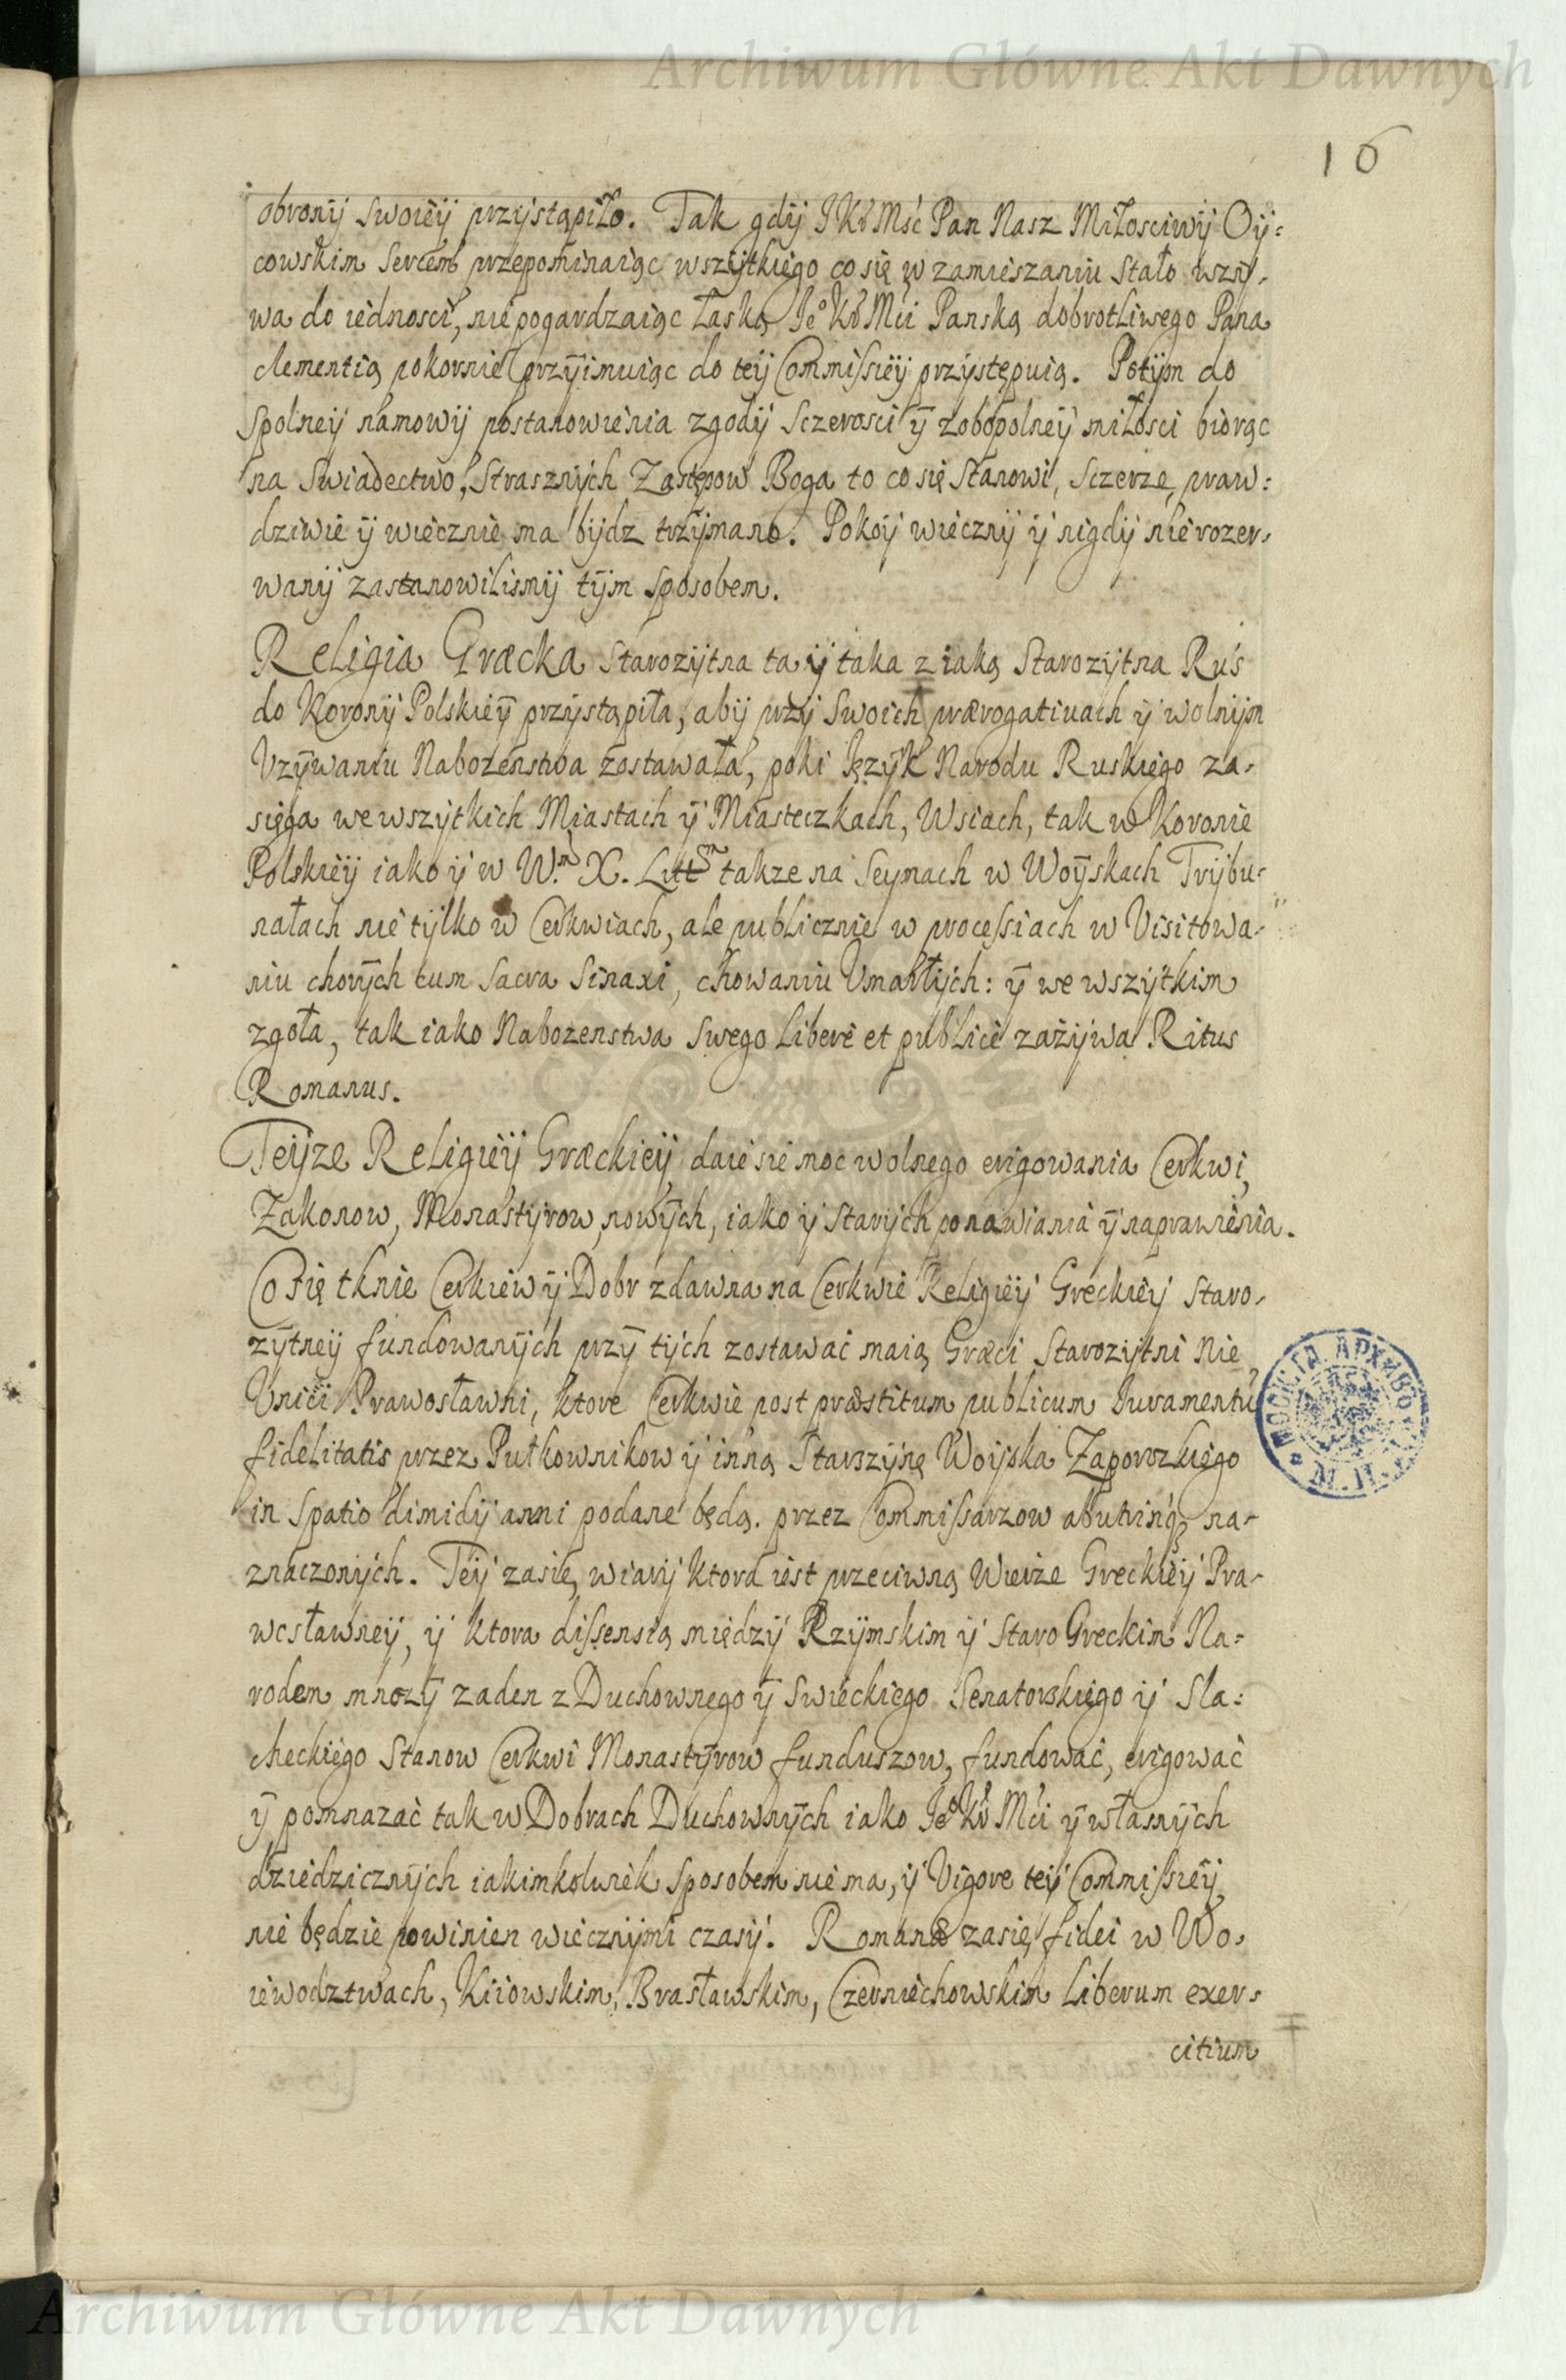 Archiwum Główne Akt Dawnych
16
obronij swoiey przystąpiło. Tak gdij JKr Mść Pan Nasz Miłosciwij Oy:
cowskim sercem przepominaiąc wszytkiego co się w zamieszaniu stało wzy-
wa do iednosci, nie pogardzaiąc łaską Ie° Kr Mći Panską dobrotliwego Pana
clementią pokornie przyimuiąc do tey Commissiey przystępuią. Potym do
spolney namowij postanowienia zgodij sczerosci ÿ zobopolney miłosci biorąc
na swiadectwo, strasznych Zastępow Boga to co się stanowi, sczerze, praw:
dziwie ÿ wiecznie ma bijdz trzymano. Pokoij wiecznij ÿ nigdij nierozer-
wanij zastanowilismij tÿm sposobem.
Religia Græcka starozijtna ta ij taka z iaką starozijtna Ruś
do Koronij Polskieÿ przystąpiła, abij przÿ swoich prærogatiuach ÿ wolnijm
Vzÿwaniu Nabozenstwa zostawała, poki Ięzÿk Narodu Ruskiego za-
sięga we wszytkich Miastach ÿ Miasteczkach, Wsiach, tak w Koronie
Polskieÿ iako ÿ w W.m X. Littm takze na Seymach w Woÿskach Trijbu-
nałach nie tÿlko w Cerkwiach, ale publicznie w processiach w Visitowa-
niu chorÿch cum sacra sinaxi, chowaniu Vmarłÿch: ÿ we wszÿtkim
zgoła, tak iako Nabozenstwa swego libere et publice zażijwa Ritus
Romanus.
Teijze Religieÿ Græckieij daie sie moc wolnego erigowania Cerkwi,
Zakonow, Monastÿrow nowÿch, iako ij starijch ponawiania ÿ naprawienia.
Co się tknie Cerkiew ÿ Dobr zdawna na Cerkwie Religieÿ Greckieÿ staro-
zÿtneij fundowanÿch przÿ tÿch zostawać maią Græci starozytni nie
Vnići Prawosławni, ktore Cerkwie post præstitum publicum Iuramentũ
fidelitatis przez Pułkownikow ÿ inną starszÿnę Woÿska Zaporozkiego
in spatio dimidij anni podane będą. przez Commissarzow abutrinq; na-
znaczonÿch. Teÿ zasię wiarÿ ktora iest przeciwną Wierze Greckieÿ Pra-
wosławneÿ, ÿ ktora dissensią międzÿ Rzÿmskim ÿ staro Greckim Na=
rodem mnozÿ zaden z Duchownego ÿ swieckiego Senatorskiego ij sla:
checkiego stanow Cerkwi Monastÿrow funduszow, fundować, erigować
ÿ pomnazać tak w Dobrach Duchownÿch iako Ie° Kr Mći ÿ własnÿch
dziedzicznÿch iakimkolwiek sposobem nie ma, ÿ Vigore teÿ Commissieÿ
nie będzie powinien wiecznÿmi czasÿ. Romanæ zasię fidei w Wo-
iewodztwach, Kiiowskim, Brasławskim, Czerniechowskim liberum exer-
citium
Archiwum Główne Akt Dawnych